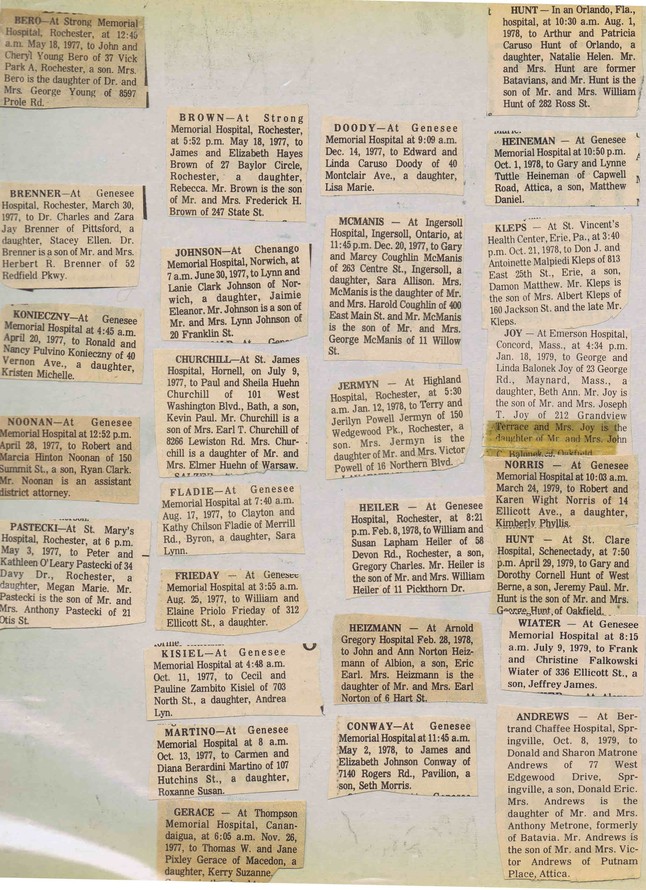 BERO—At Strong Memorial
Hospital, Rochester, at 12:40
a.m. May 18, 1977, to John and
Cheryl Young Bero of 37 Vick
Park A, Rochester, a son. Mrs.
Bero is the daughter of Dr. and
Mrs. George Young of 8597
Prole Rd.
BRENNER—At Genesee
Hospital, Rochester, March 30,
1977, to Dr. Charles and Zara
Jay Brenner of Pittsford, a
daughter, Stacey Ellen. Dr.
Brenner is a son of Mr. and Mrs.
Herbert R. Brenner of 52
Redfield Pkwy.
KONIECZNY—At Genesee
Memorial Hospital at 4:45 a.m.
April 20, 1977, to Ronald and
Nancy Pulvino Konieczny of 40
Vernon Ave., a daughter,
Kristen Michelle.
NOONAN—At Genesee
Memorial Hospital at 12:52 p.m.
April 28, 1977, to Robert and
Marcia Hinton Noonan of 150
Summit St., a son, Ryan Clark.
Mr. Noonan is an assistant
district attorney.
PASTECKI—At St. Mary's
Hospital, Rochester, at 6 p.m.
May 3, 1977, to Peter and
Kathleen O'Leary Pastecki of 34
Davy Dr., Rochester, a
daughter, Megan Marie. Mr.
Pastecki is the son of Mr. and
Mrs. Anthony Pastecki of 21
Otis St.
BROWN—At Strong
Memorial Hospital, Rochester,
at 5:52 p.m. May 18, 1977, to
James and Elizabeth Hayes
Brown of 27 Baylor Circle,
Rochester, a daughter,
Rebecca. Mr. Brown is the son
of Mr. and Mrs. Frederick H.
Brown of 247 State St.
JOHNSON—At Chenango
Memorial Hospital, Norwich, at
7 a.m. June 30, 1977, to Lynn and
Lanie Clark Johnson of Nor-
wich, a daughter, Jaimie
Eleanor. Mr. Johnson is a son of
Mr. and Mrs. Lynn Johnson of
20 Franklin St.
CHURCHILL—At St. James
Hospital, Hornell, on July 9,
1977, to Paul and Sheila Huehn
Churchill of 101 West
Washington Blvd., Bath, a son,
Kevin Paul. Mr. Churchill is a
son of Mrs. Earl T. Churchill of
8266 Lewiston Rd. Mrs. Chur-
chill is a daughter of Mr. and
Mrs. Elmer Huehn of Warsaw.
FLADIE—At Genesee
Memorial Hospital at 7:40 a.m.
Aug. 17, 1977, to Clayton and
Kathy Chilson Fladie of Merrill
Rd., Byron, a daughter, Sara
Lynn.
FRIEDAY—At Genesee
Memorial Hospital at 3:55 a.m.
Aug. 25, 1977, to William and
Elaine Priolo Frieday of 312
Ellicott St., a daughter.
KISIEL—At Genesee
Memorial Hospital at 4:48 a.m.
Oct. 11, 1977, to Cecil and
Pauline Zambito Kisiel of 703
North St., a daughter, Andrea
Lyn.
MARTINO—At Genesee
Memorial Hospital at 8 a.m.
Oct. 13, 1977, to Carmen and
Diana Berardini Martino of 107
Hutchins St., a daughter,
Roxanne Susan.
GERACE—At Thompson
Memorial Hospital, Canan-
daigua, at 6:05 a.m. Nov. 26,
1977, to Thomas W. and Jane
Pixley Gerace of Macedon, a
daughter, Kerry Suzanne.
DOODY—At Genesee
Memorial Hospital at 9:09 a.m.
Dec. 14, 1977, to Edward and
Linda Caruso Doody of 40
Montclair Ave., a daughter,
Lisa Marie.
MCMANIS — At Ingersoll
Hospital, Ingersoll, Ontario, at
11:45 p.m. Dec. 20, 1977, to Gary
and Marcy Coughlin McManis
of 263 Centre St., Ingersoll, a
daughter, Sara Allison. Mrs.
McManis is the daughter of Mr.
and Mrs. Harold Coughlin of 400
East Main St. and Mr. McManis
is the son of Mr. and Mrs.
George McManis of 11 Willow
St.
JERMYN — At Highland
Hospital, Rochester, at 5:30
a.m. Jan. 12, 1978, to Terry and
Jerilyn Powell Jermyn of 150
Wedgewood Pk., Rochester, a
son. Mrs. Jermyn is the
daughter of Mr. and Mrs. Victor
Powell of 16 Northern Blvd.
HEILER — At Genesee
Hospital, Rochester, at 8:21
p.m. Feb. 8, 1978, to William and
Susan Lapham Heiler of 58
Devon Rd., Rochester, a son,
Gregory Charles. Mr. Heiler is
the son of Mr. and Mrs. William
Heiler of 11 Pickthorn Dr.
HEIZMANN — At Arnold
Gregory Hospital Feb. 28, 1978,
to John and Ann Norton Heiz-
mann of Albion, a son, Eric
Earl. Mrs. Heizmann is the
daughter of Mr. and Mrs. Earl
Norton of 6 Hart St.
CONWAY— At Genesee
Memorial Hospital at 11:45 a.m.
May 2, 1978, to James and
Elizabeth Johnson Conway of
7140 Rogers Rd., Pavilion, a
son, Seth Morris.
HUNT — In an Orlando, Fla.,
hospital, at 10:30 a.m. Aug. 1,
1978, to Arthur and Patricia
Caruso Hunt of Orlando, a
daughter, Natalie Helen. Mr.
and Mrs. Hunt are former
Batavians, and Mr. Hunt is the
son of Mr. and Mrs. William
Hunt of 282 Ross St.
HEINEMAN — At Genesee
Memorial Hospital at 10:50 p.m.
Oct. 1, 1978, to Gary and Lynne
Tuttle Heineman of Capwell
Road, Attica, a son, Matthew
Daniel.
KLEPS — At St. Vincent's
Health Center, Erie, Pa., at 3:40
p.m. Oct. 21, 1978, to Don J. and
Antoinette Malpiedi Kleps of 813
East 25th St., Erie, a son,
Damon Matthew. Mr. Kleps is
the son of Mrs. Albert Kleps of
160 Jackson St. and the late Mr.
Kleps.
JOY — At Emerson Hospital,
Concord, Mass., at 4:34 p.m.
Jan. 18, 1979, to George and
Linda Balonek Joy of 23 George
Rd., Maynard, Mass., a
daughter, Beth Ann. Mr. Joy is
the son of Mr. and Mrs. Joseph
T. Joy of 212 Grandview
Terrace and Mrs. Joy is the
daughter of Mr. and Mrs. John
C. Balonek of Oakfield.
NORRIS — At Genesee
Memorial Hospital at 10:03 a.m.
March 24, 1979, to Robert and
Karen Wight Norris of 14
Ellicott Ave., a daughter,
Kimberly Phyllis.
HUNT — At St. Clare
Hospital, Schenectady, at 7:50
p.m. April 29, 1979, to Gary and
Dorothy Cornell Hunt of West
Berne, a son, Jeremy Paul. Mr.
Hunt is the son of Mr. and Mrs.
George Hunt, of Oakfield.
WIATER — At Genesee
Memorial Hospital at 8:15
a.m. July 9, 1979, to Frank
and Christine Falkowski
Wiater of 336 Ellicott St., a
son, Jeffrey James.
ANDREWS — At Ber-
trand Chaffee Hospital, Spr-
ingville, Oct. 8, 1979, to
Donald and Sharon Matrone
Andrews of 77 West
Edgewood Drive, Spr-
ingville, a son, Donald Eric.
Mrs. Andrews is the
daughter of Mr. and Mrs.
Anthony Metrone, formerly
of Batavia. Mr. Andrews is
the son of Mr. and Mrs. Vic-
tor Andrews of Putnam
Place, Attica.